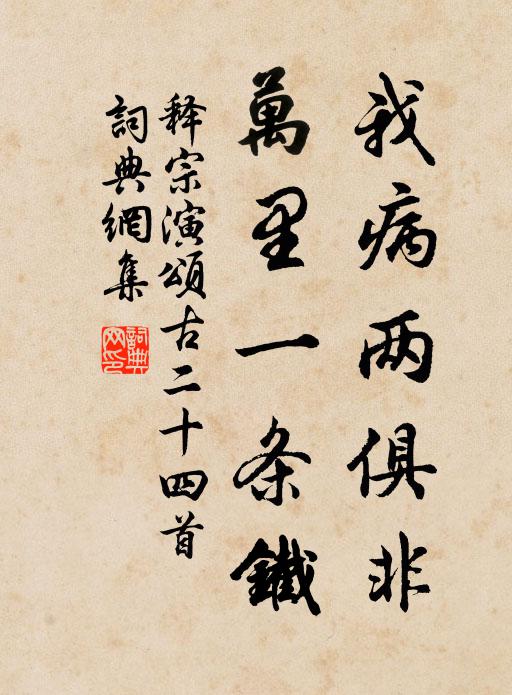 我病两俱非
萬里一条鐵
释宗演頌古二十四首
詞典網集
詞典网印